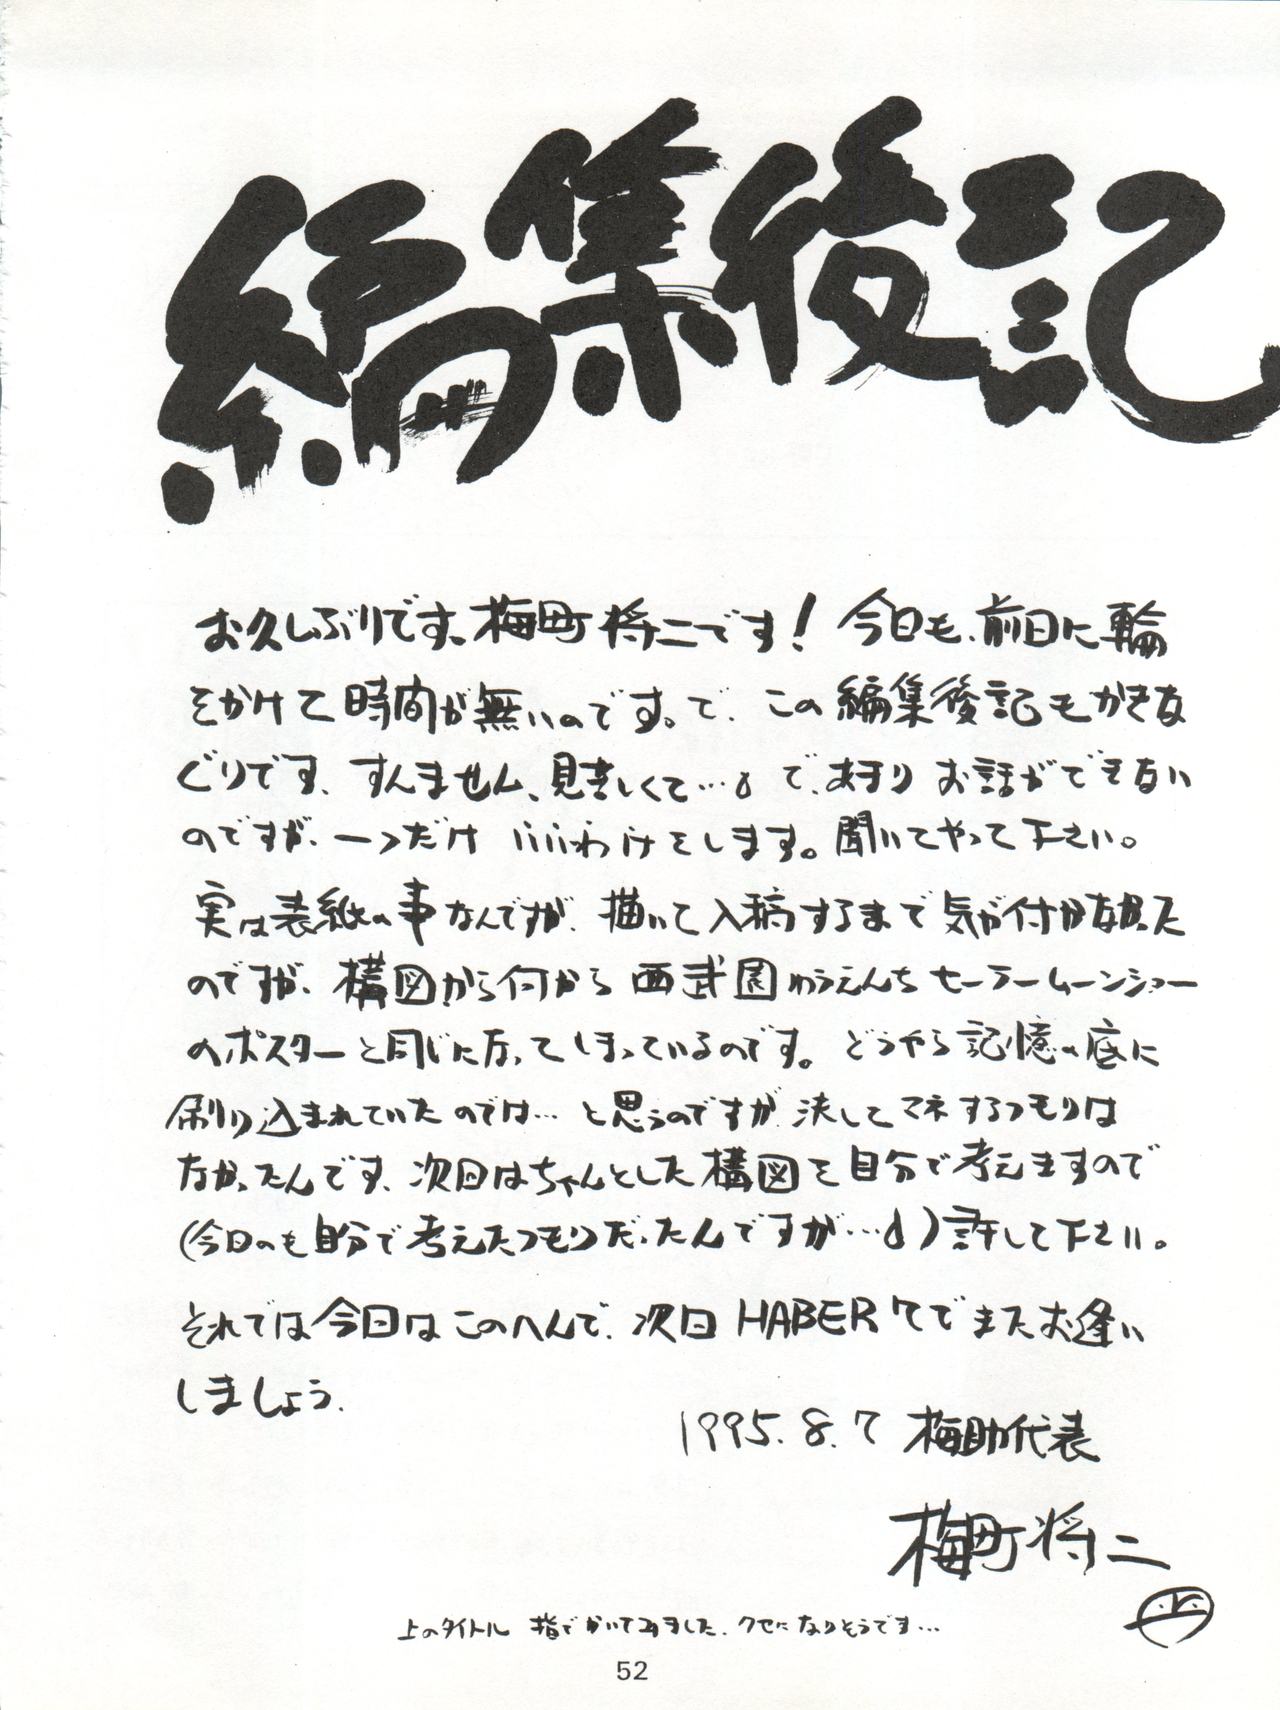 編集後記
お久しぶりです、梅町将二です！今回も、前回に輪
をかけて時間が無いのです。で、この編集後記もかきな
ぐりです、すんません、見苦しくて…。で、あまりお話ができない
のですが、一つだけいいわけをします。聞いてやって下さい。
実は表紙の事なんですが、描いて入稿するまで気が付かなかった
のですが、構図から何から西武園ゆうえんちセーラームーンショー
のポスターと同じになってしまっているのです。どうやら記憶の底に
刷り込まれていたのでは…と思うのですが、決してマネするつもりは
なかったんです、次回はちゃんとした構図を自分で考えますので
(今回のも自分で考えたつもりだったんですが…)許して下さい。
それでは今回はこのへんで、次回HABER 7でまたお逢い
しましょう。
1995.8.7 梅助代表
梅町将二
上のタイトル 指でかいてみました、クセになりそうです…
52